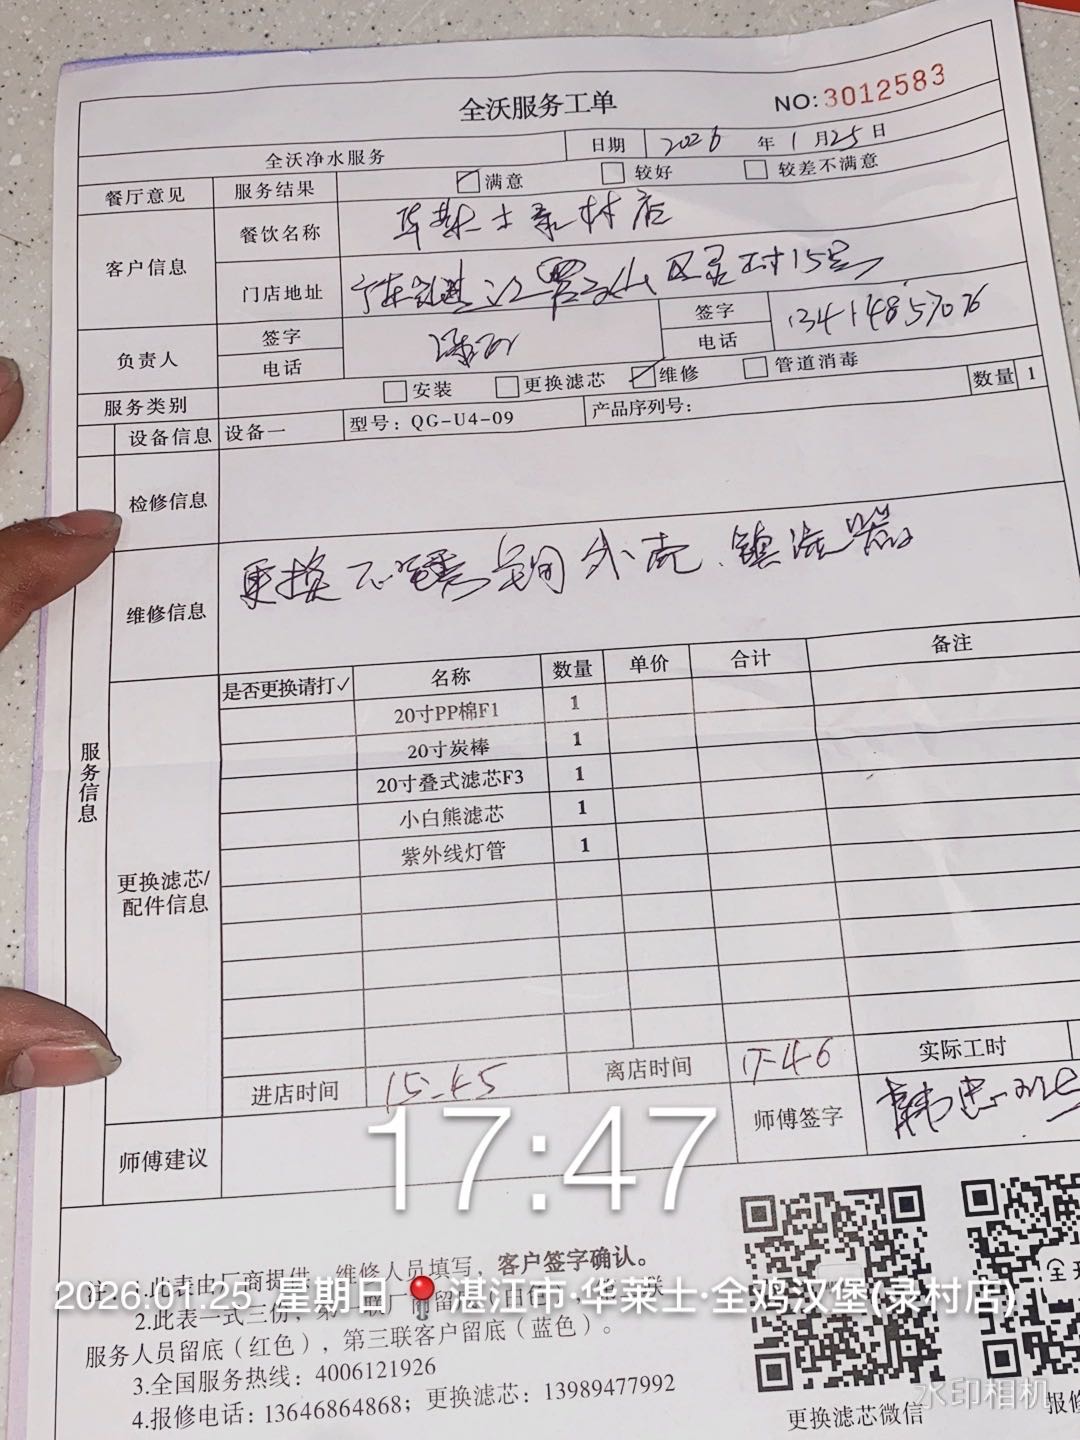 全沃服务工单
NO:3012583
全沃净水服务 日期 2026 年 1 月 25 日
餐厅意见 服务结果 满意 较好 较差不满意
客户信息 餐饮名称 华莱士录村店
门店地址 15号
负责人 签字 电话 签字 电话 13414857076
服务类别 安装 更换滤芯 维修 管道消毒
设备信息 设备一 型号：QG-U4-09 产品序列号： 数量 1
服务信息
检修信息
维修信息 更换 外壳、镇流器
更换滤芯/配件信息
是否更换请打✓ 名称 数量 单价 合计 备注
20寸PP棉F1 1
20寸炭棒 1
20寸叠式滤芯F3 1
小白熊滤芯 1
紫外线灯管 1
进店时间 15-45 离店时间 17-46 实际工时
师傅建议 师傅签字
17:47
注：1.此表由厂商提供，维修人员填写，客户签字确认。
2026.01.25 星期日 湛江市·华莱士·全鸡汉堡(录村店)
2.此表一式三份，第一联厂 留 白色
服务人员留底（红色），第三联客户留底（蓝色）。
3.全国服务热线：4006121926
4.报修电话：13646864868；更换滤芯：13989477992
更换滤芯微信
报修
水印相机